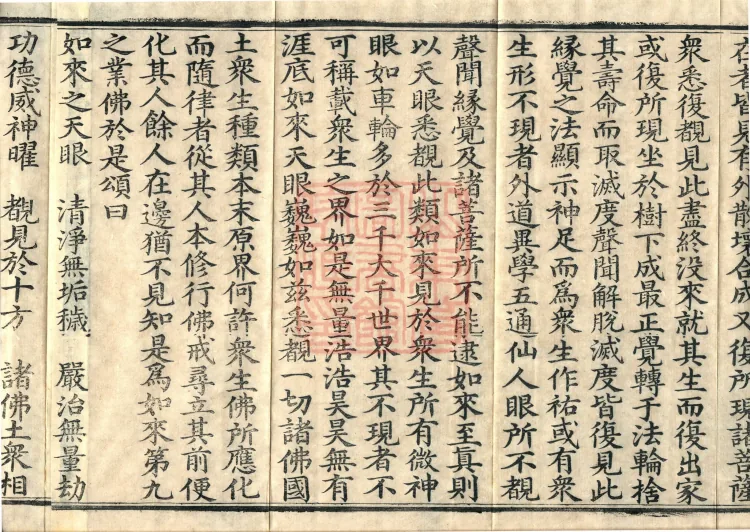 在者皆見有外散壞合成又復所現諸菩薩
衆悉復覩見此盡終没來就其生而復出家
或復所現坐於樹下成最正覺轉于法輪捨
其壽命而取滅度聲聞解脫滅度皆復見此
縁覺之法顯示神足而爲衆生作祐或有衆
生形不現者外道異學五通仙人眼所不覩
聲聞縁覺及諸菩薩所不能逮如來至真則
以天眼悉覩此類如來見於衆生所有微神
眼如車輪多於三千大千世界其不現者不
可稱載衆生之界如是無量浩浩昊昊無有
涯底如來天眼巍巍如兹悉觀一切諸佛國
土衆生種類本末原界何許衆生佛所應化
而隨律者從其人本修行佛戒尋立其前便
化其人餘人在邊猶不見知是爲如來第九
之業佛於是頌曰
如來之天眼　清淨無垢穢　嚴治無量劫
功德威神曜　覩見於十方　諸佛土衆相